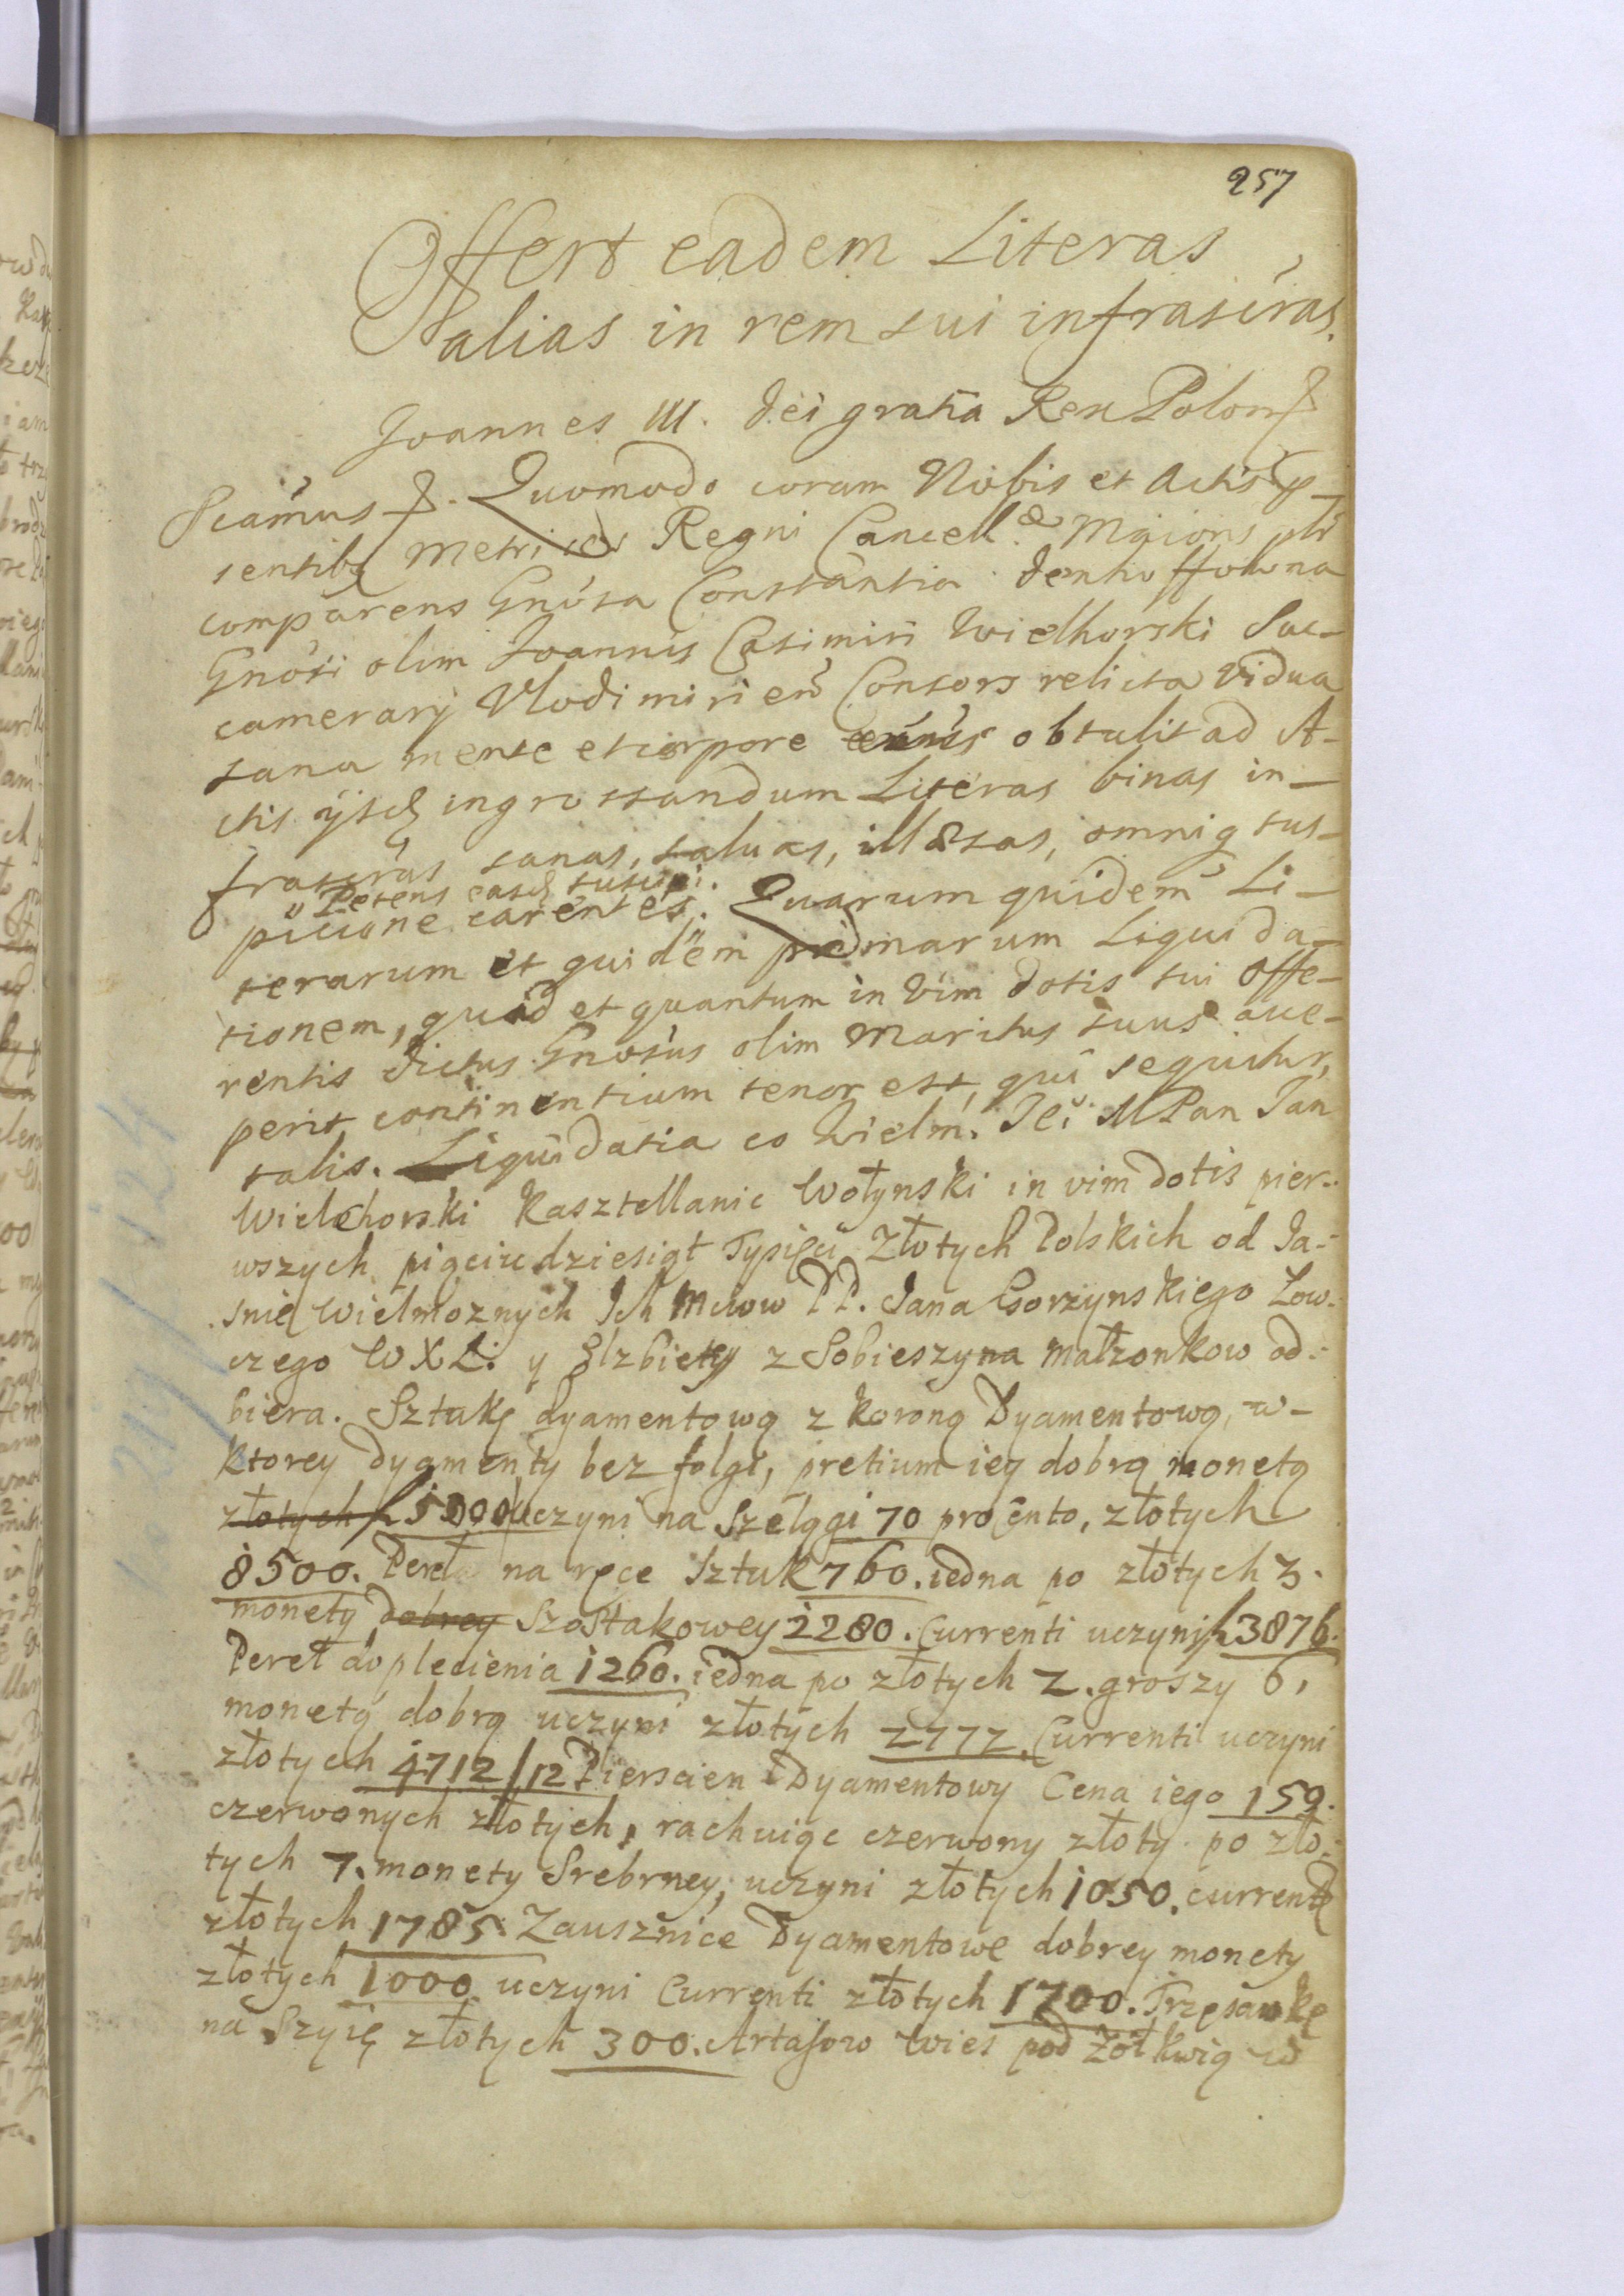 257
Offert eadem Literas
alias in rem sui infrascras.
Joannes III. Dei gratia Rex Polon
Scamus. Quomodo coram Nobis et Actis p-
sentibq Metrices Regni Cancell. Maioris
comparens Gnosa Constantia Denhoffowna
Gnosi olim Joannis Casimiri Wielhorski Suc-
camerarij Vlodimirien Consors relicta Vidua
sana mente et corpore obtulit ad A-
ctis ijsd ingrossandum Literas binas in-
frascras sanas, saluas, illæsas, omniq sus-
Petens easd suscipi.
picione carentes. Quarum quidem Li-
terarum et quidem primarum Liquida-
tionem, quid et quantum in vim dotis sui offe-
rentis dictus Gnosus olim Maritus suus acce-
perit continentium tenor est, qui sequitur,
talis. Liquidatia co Wielm. Je: M Pan Jan
Wielchorski Kasztellanic Wołynski in vim dotis pier-
wszych pięciudziesiąt Tysięcy Złotych Polskich od Ja-
snie Wielmoznych Ich Mciow PP. Jana Gorzynskiego Łow-
czego W X L: y Elzbiety z Sobieszyna Małzonkow od-
biera. Sztukę dyamentową z koroną Dyamentową, w-
ktorey dyamenty bez folgi, pretium iey dobrą monetą
złotych 5000 uczyni na Szelągi 70 pro Cento, złotych
8500. Pereł na ręce Sztuk 760. iedna po złotych 3.
monety dobrey Szostakowey 2280. Currenti uczyni 3876.
Pereł do plecienia 1260. iedna po złotych 2. groszy 6,
monetą dobrą uczyni złotych 2772. Currenti uczyni
złotych 4712/12 Pierscien Dyamentowy Cena iego 150.
czerwonych złotych, rachuiąc czerwony złoty po zło-
tych 7. monety Srebrney, uczyni złotych 1050. currenti
złotych 1785. Zausznice Dyamentowe dobrey monety
złotych 1000 uczyni Currenti złotych 1700. Trzęsawkę
na Szyię złotych 300. Artasow Wies pod Zołkwią w